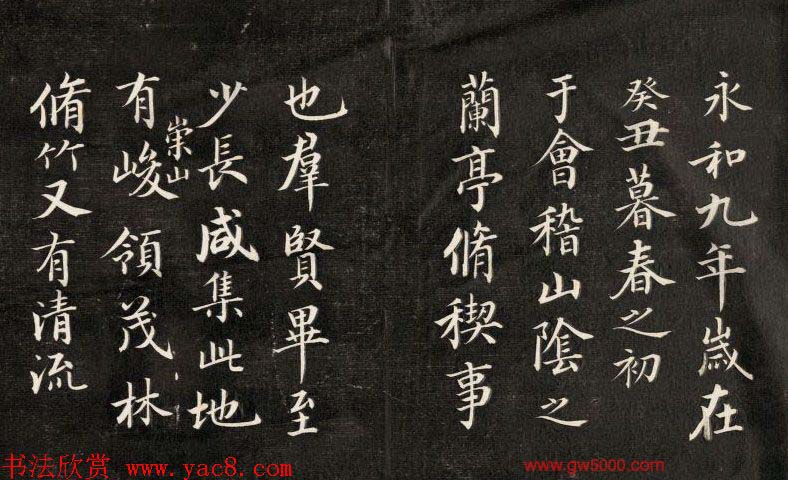 永和九年歲在
癸丑暮春之初
于會稽山陰之
蘭亭脩稧事
也羣賢畢至
少長咸集此地
有崇山峻領茂林
脩竹又有清流
书法欣赏 www.yac8.com
www.gw5000.com